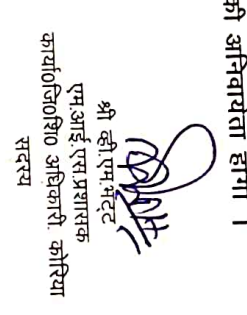 की अनिवार्यता होगी ।
श्री व्ही.एम.भट्ट
एम.आई.एस.प्रशासक
कार्या0जि0शि0 अधिकारी. कोरिया
सदस्य